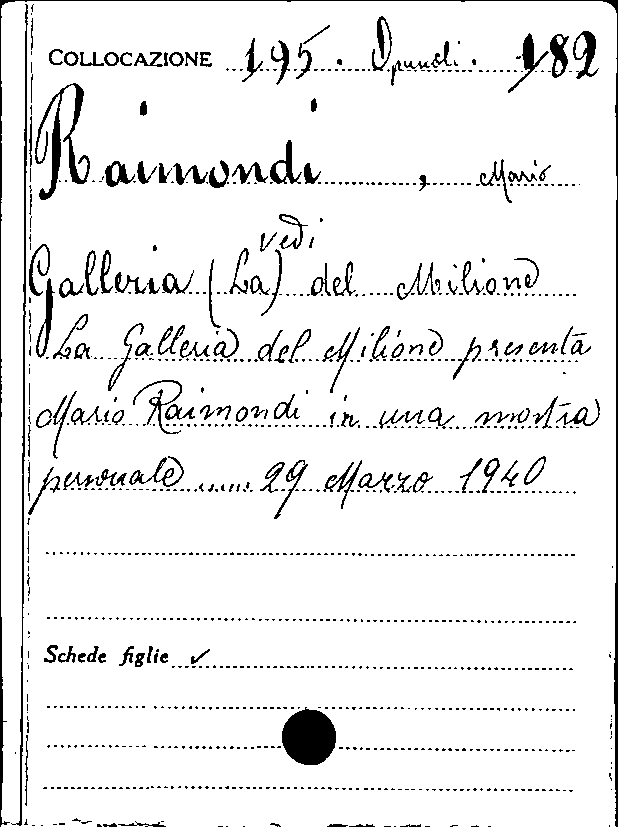 COLLOCAZIONE 195. Opuscoli. 182
Raimondi, Mario
vedi
Galleria (La) del Milione
La Galleria del Milione presenta
Mario Raimondi in una mostra
personale ...... 29 Marzo 1940
Schede figlie ✓